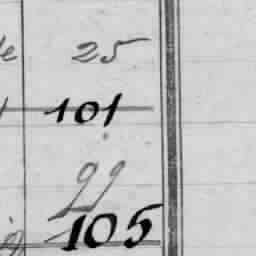 25
101
99
105